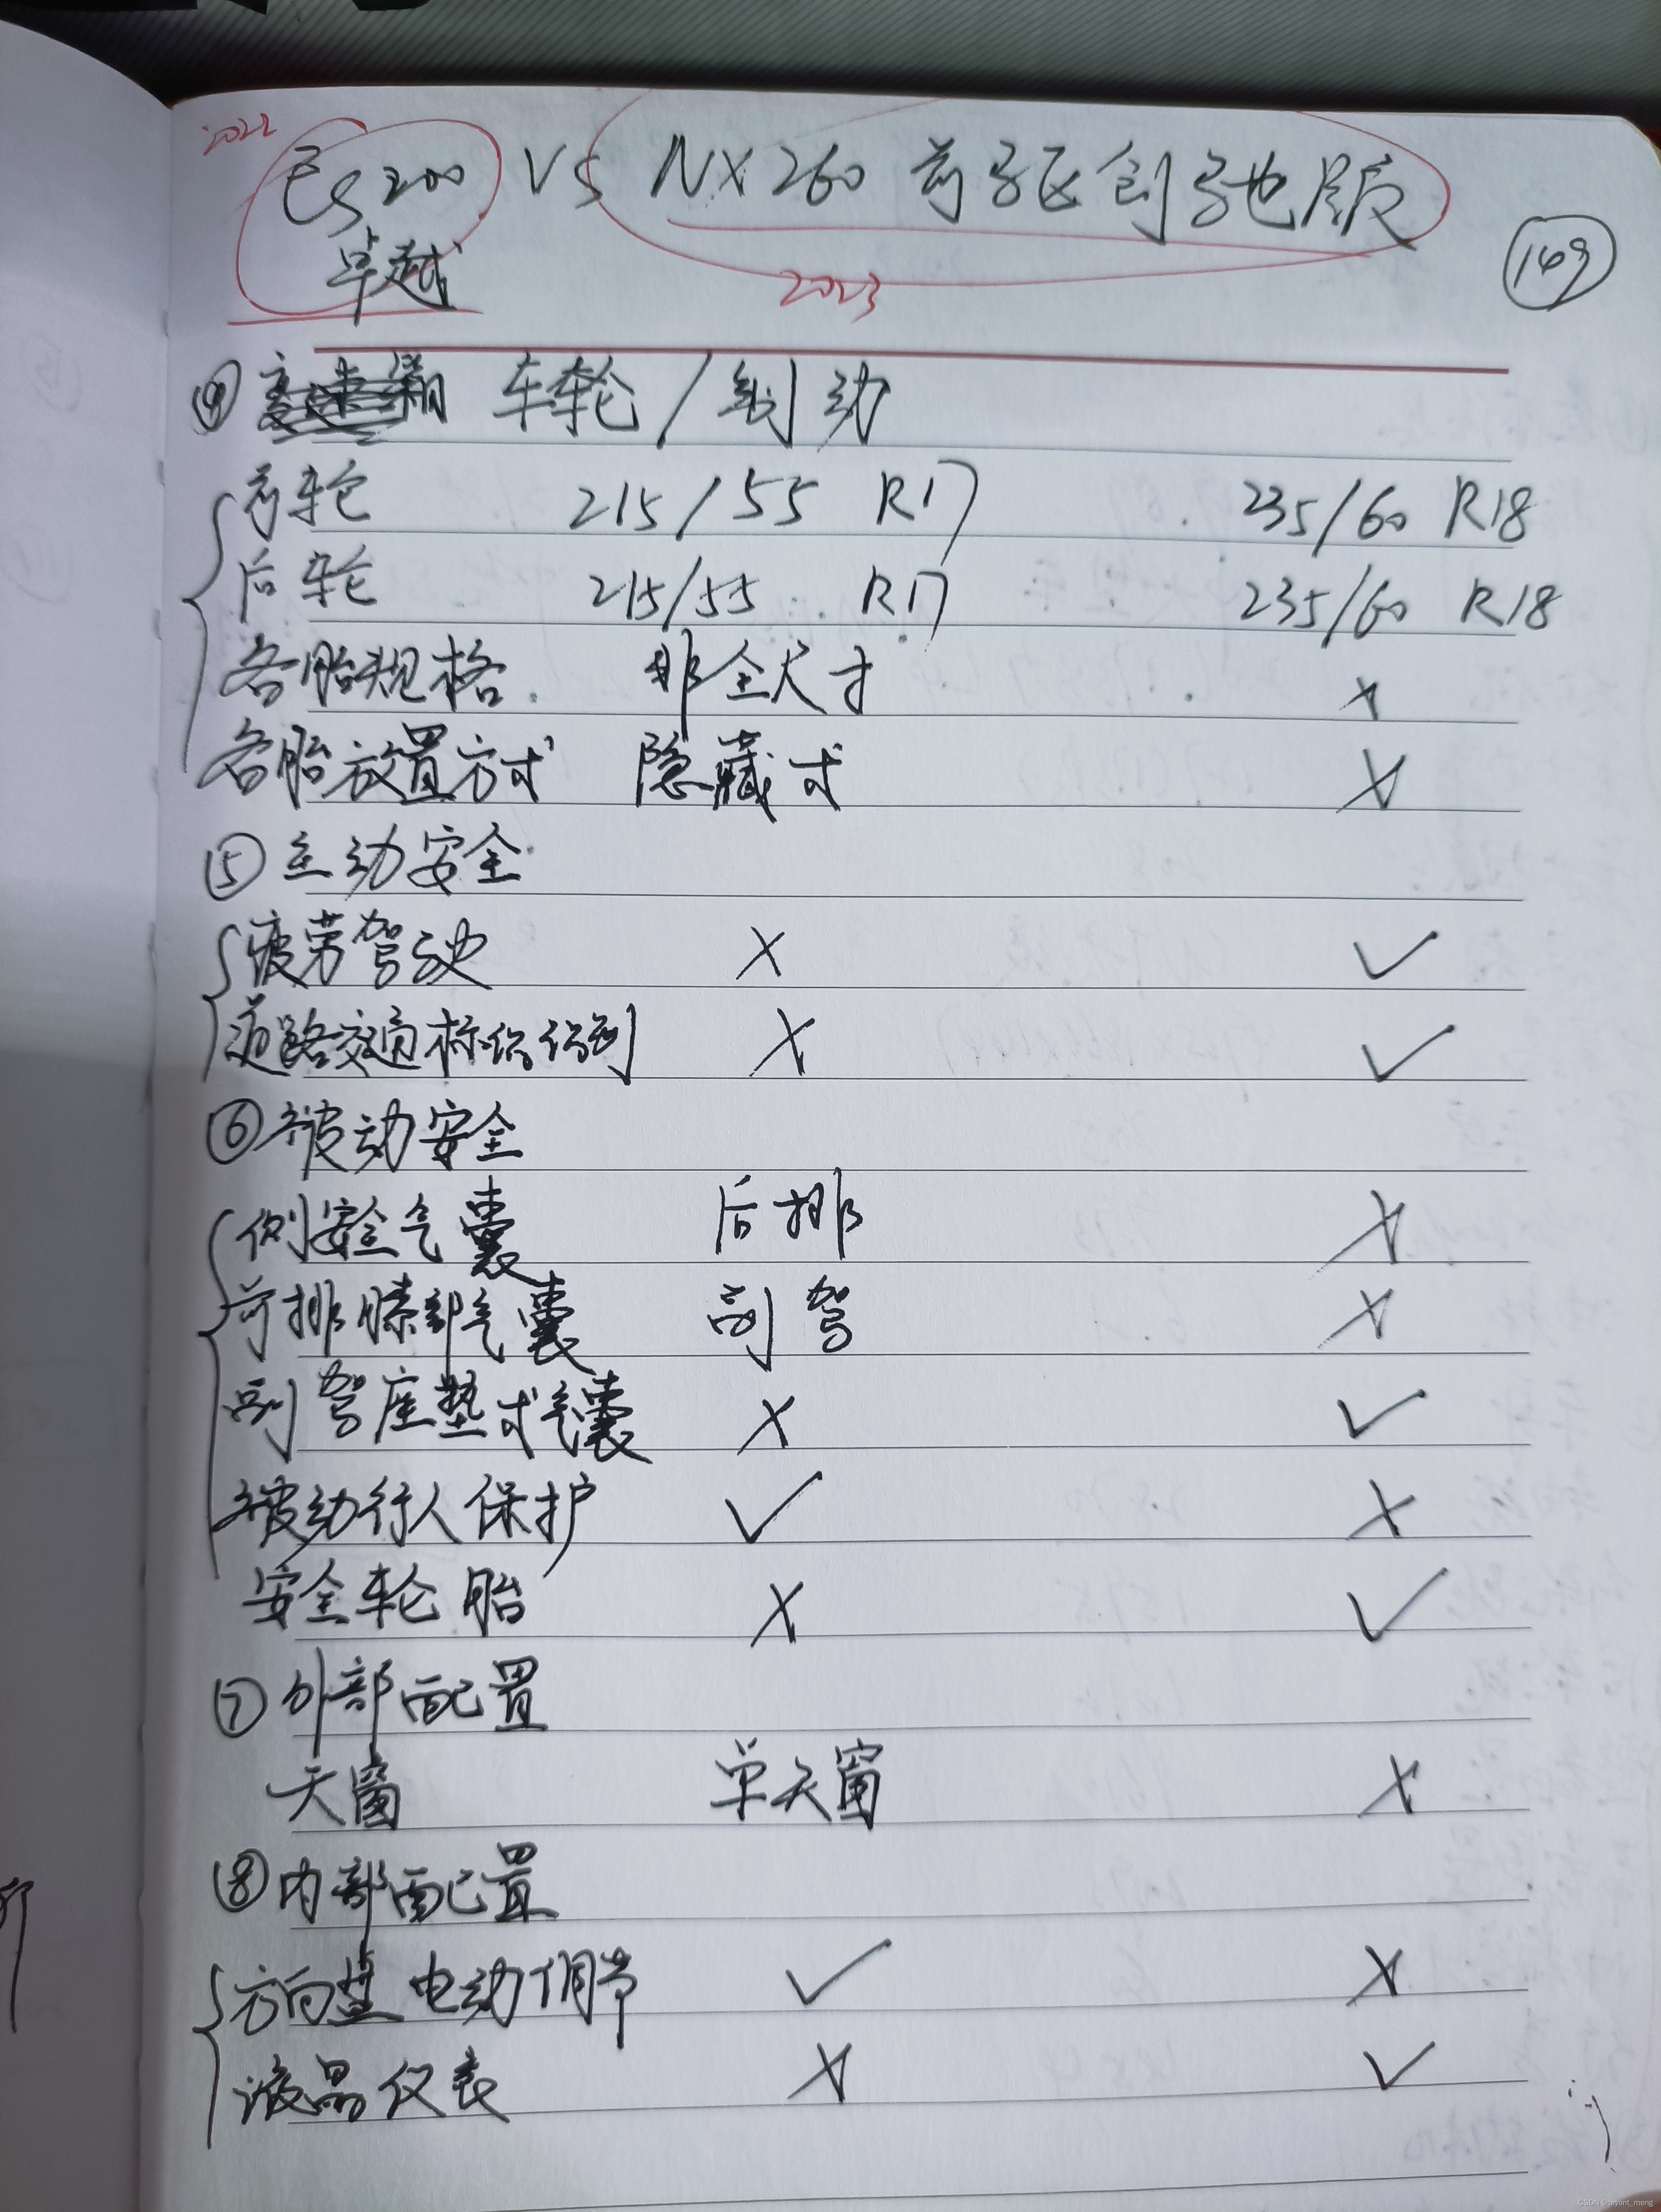 2022
ES200 VS NX260 前驱创驰版
卓越
2023
149
④ 车轮/制动
前轮 215/55 R17 235/60 R18
后轮 215/55 R17 235/60 R18
备胎规格 非全尺寸 ×
备胎放置方式 隐藏式 ×
⑤ 主动安全
疲劳驾驶 × ✓
道路交通标识识别 × ✓
⑥ 被动安全
侧安全气囊 后排 ×
前排膝部气囊 副驾 ×
副驾座垫式气囊 × ✓
被动行人保护 ✓ ×
安全轮胎 × ✓
⑦ 外部配置
天窗 单天窗 ×
⑧ 内部配置
方向盘电动调节 ✓ ×
液晶仪表 × ✓
CSDN @bryant_meng